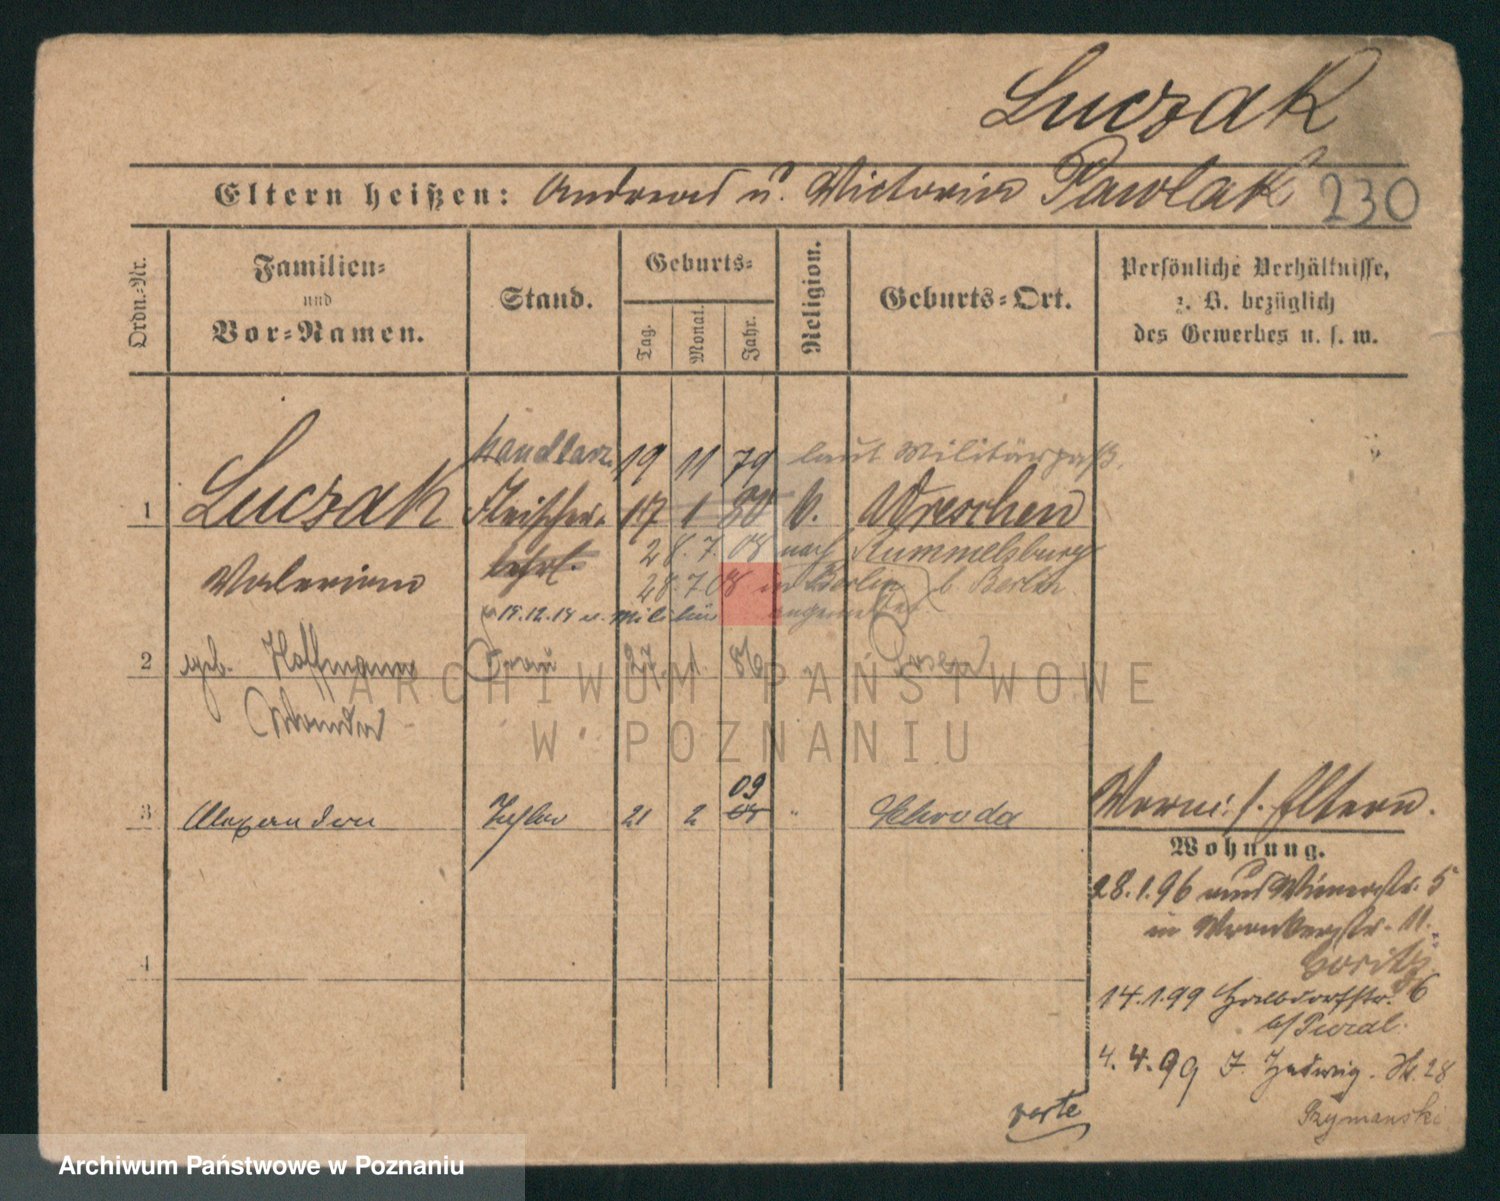 Luczak
Eltern heißen: Andreas u. Victoria Pawlak 230
Ordn.-Nr.
Familien- und Vor-Namen.
Stand.
Geburts-
Tag. Monat. Jahr.
Religion.
Geburts-Ort.
Persönliche Verhältnisse,
z. B. bezüglich
des Gewerbes u. s. w.
19 11 79 laut Militärpaß.
1 Luczak Fleischer 17 1 80 k. Wreschen
28.7.08 nach Rummelsburg
Valerian lehrl.
28.7.08 in Berlin b. Berlin
18.12.18 v. Militär angemeldet
2 geb. Hoffmann Frau 27. 1. 86 " Posen
3 Alexander Sohn 21 2 09 " Schroda
4
Vorm: s. Eltern.
Wohnung.
28.1.96 5
in 11.
14.1.99 Halbdorfstr. 6
b/
4.4.99 28
Szymanski
verte
ARCHIWUM PAŃSTWOWE
W POZNANIU
Archiwum Państwowe w Poznaniu